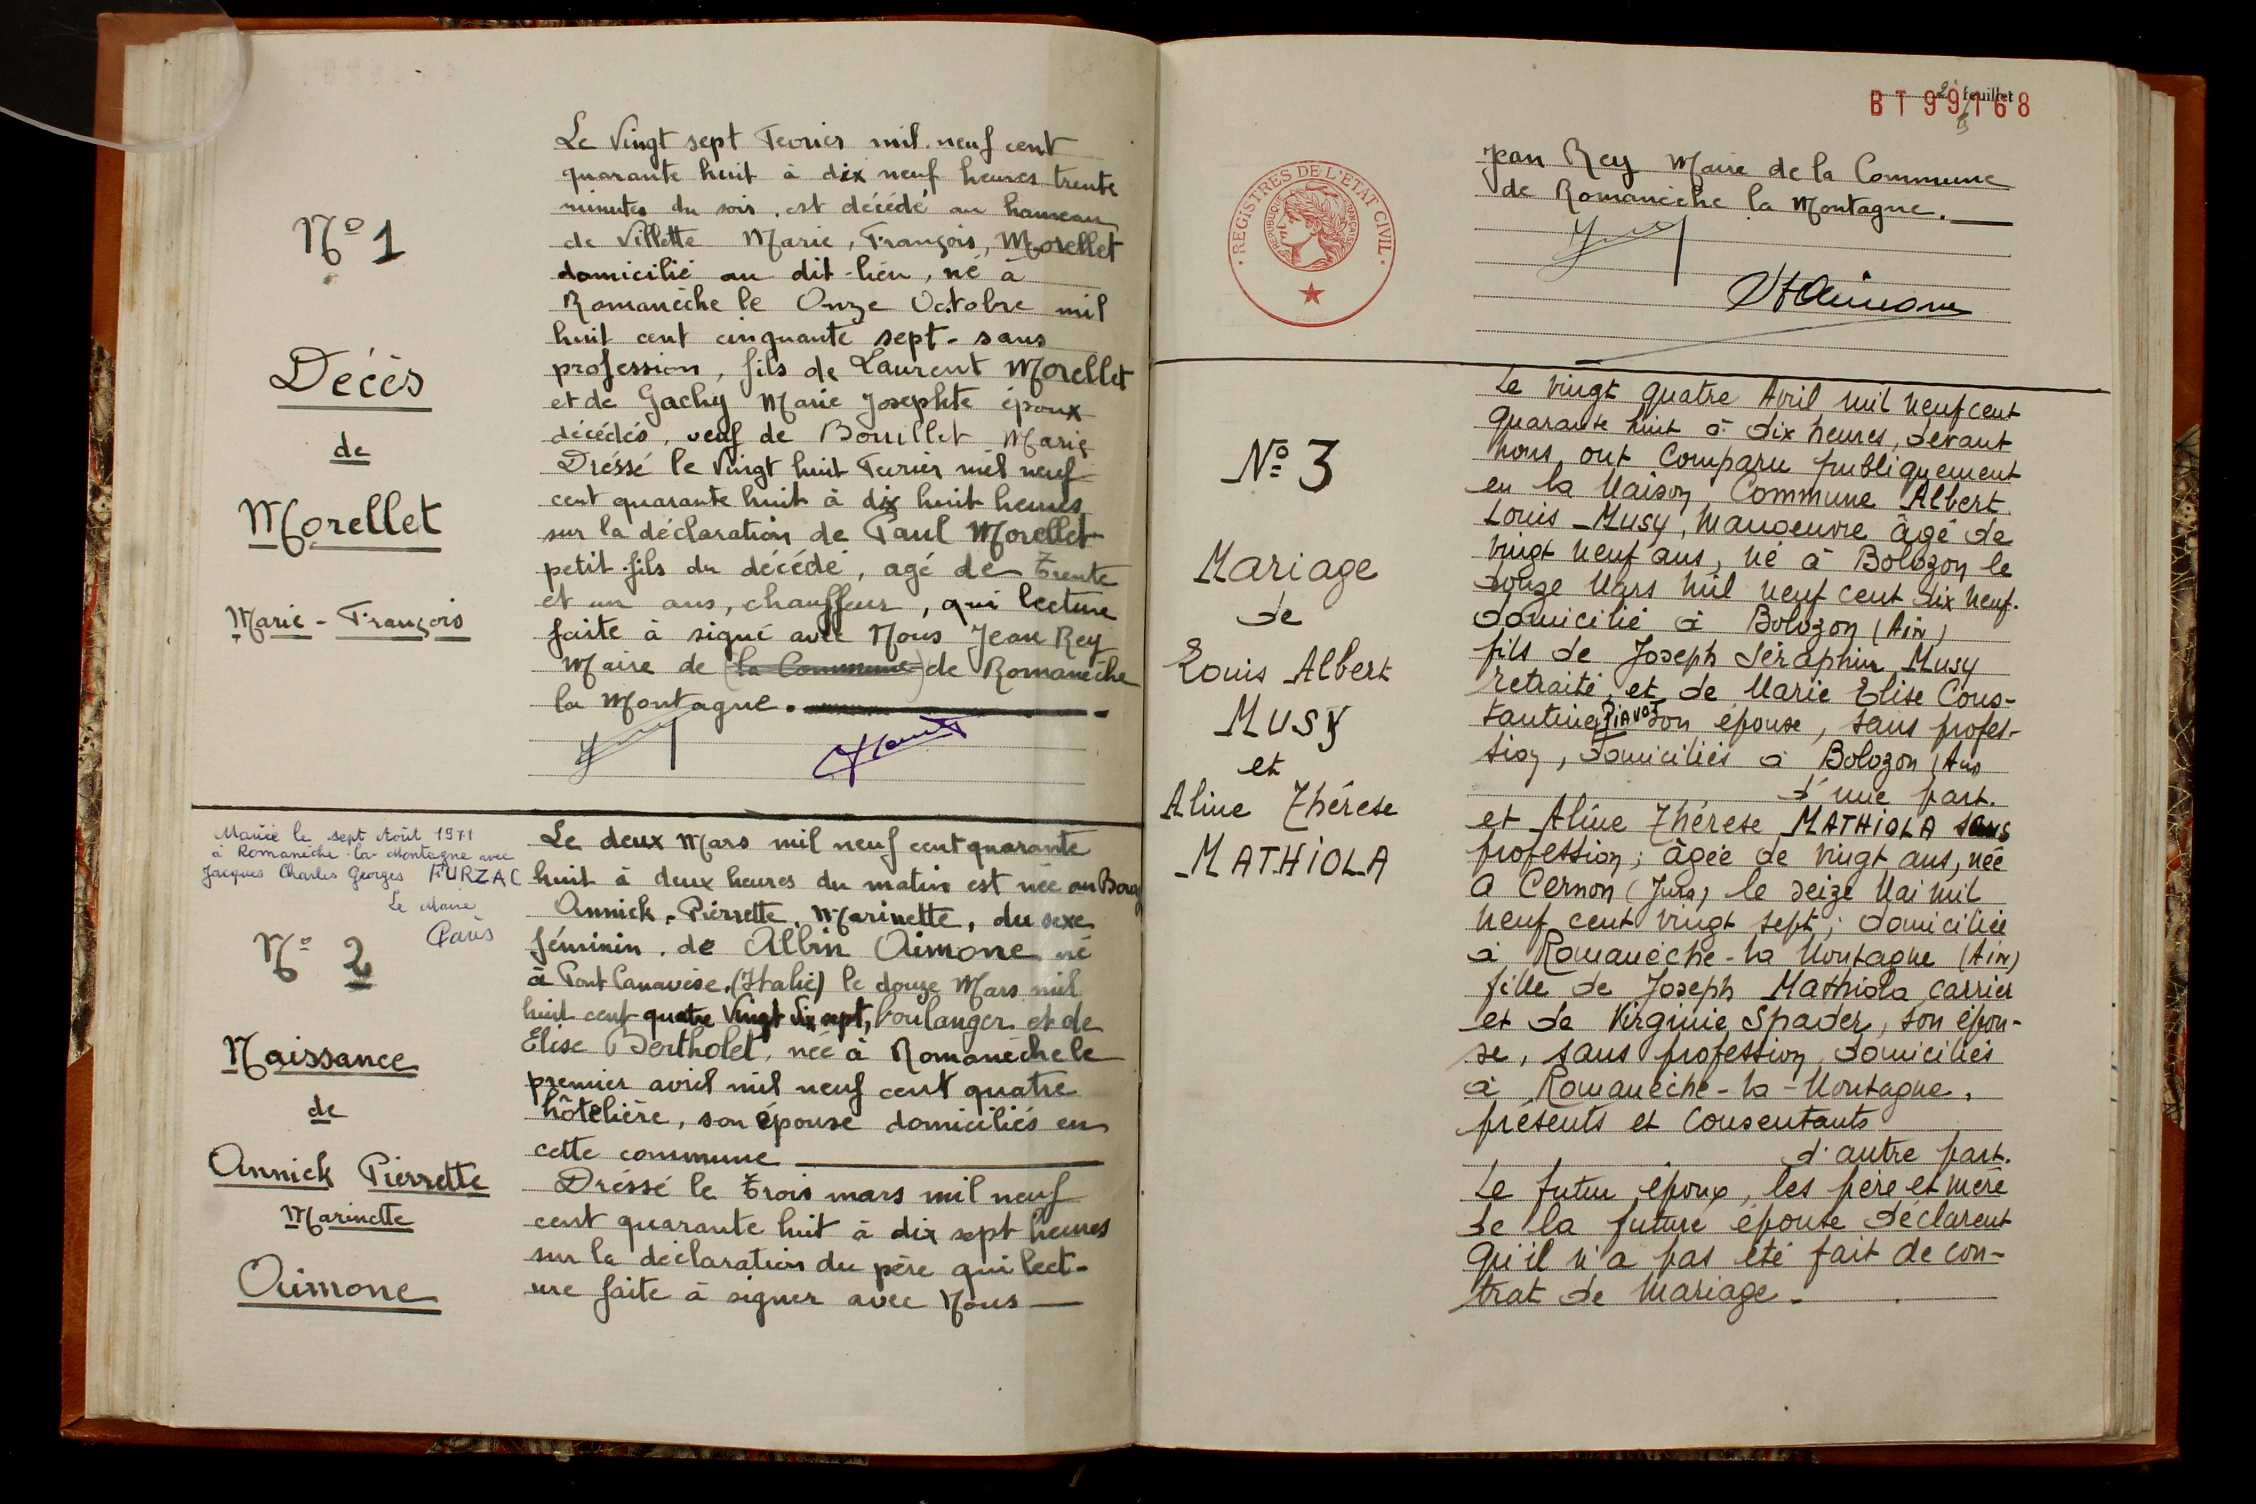 Nº 1
Décès
de
Morellet
Marie - François
Le Vingt sept Fevrier mil neuf cent
quarante huit à dix neuf heures trente
minutes du soir, est décédé au hameau
de Villette Marie, François, Morellet
domicilié au dit-lieu, né à
Romanèche le Onze Octobre mil
huit cent cinquante sept - sans
profession, fils de Laurent Morellet
et de Gachy Marie Josephte époux
décédés, veuf de Bouillet Marie
Dréssé le Vingt huit Fevrier mil neuf
cent quarante huit à dix huit heures
sur la déclaration de Paul Morellet
petit-fils du décédé, agé de Trente
et un ans, chauffeur, qui lecture
faite à signé avec Nous Jean Rey
Maire de (la Commune) de Romanèche
la Montagne.
Mariée le sept Août 1971
à Romanèche-la-Montagne avec
Jacques Charles Georges FURZAC
Le Maire
Nº 2
Naissance
de
Annick Pierrette
Marinette
Aimone
Le deux Mars mil neuf cent quarante
huit à deux heures du matin est née au Bourg
Annick, Pierrette, Marinette, du sexe
féminin, de Albin Aimone né
à Pont Canavèse, (Italie) le douze Mars mil
huit cent quatre Vingt dix sept, boulanger et de
Elise Bertholet, née à Romanèche le
premier avril mil neuf cent quatre
hôtelière, son épouse domiciliés en
cette commune
Dréssé le Trois mars mil neuf
cent quarante huit à dix sept heures
sur la déclaration du père qui lect-
ure faite à signer avec Nous
2 feuillet
BT 99168
REGISTRES DE L'ETAT CIVIL
REPUBLIQUE FRANÇAISE
Jean Rey Maire de la Commune
de Romanèche la Montagne.
Nº 3
Mariage
de
Louis Albert
MUSY
et
Aline Thérese
MATHIOLA
Le vingt quatre Avril mil neuf cent
quarante huit à dix heures, devant
nous ont comparu publiquement
en la Maison Commune Albert
Louis MUSY, Manoeuvre âgé de
vingt neuf ans, né à Bolozon le
douze Mars mil neuf cent dix neuf.
domicilié à Bolozon (Ain)
fils de Joseph Séraphin Musy
retraité, et de Marie Elise Cons-
tantine PIAVOT son épouse, sans profes-
sion, domiciliés à Bolozon (Ain
d'une part.
et Aline Thérese MATHIOLA sans
profession; âgée de vingt ans, née
à Cernon (Jura) le seize Mai mil
neuf cent vingt sept; domiciliée
à Romanèche-la Montagne (Ain)
fille de Joseph Mathiola carrier
et de Virginie Spader, son épou-
se, sans profession domiciliés
à Romanèche-la-Montagne,
présents et consentants
d'autre part.
Le futur époux, les père et mère
de la future épouse déclarent
qu'il n'a pas été fait de con-
trat de Mariage.